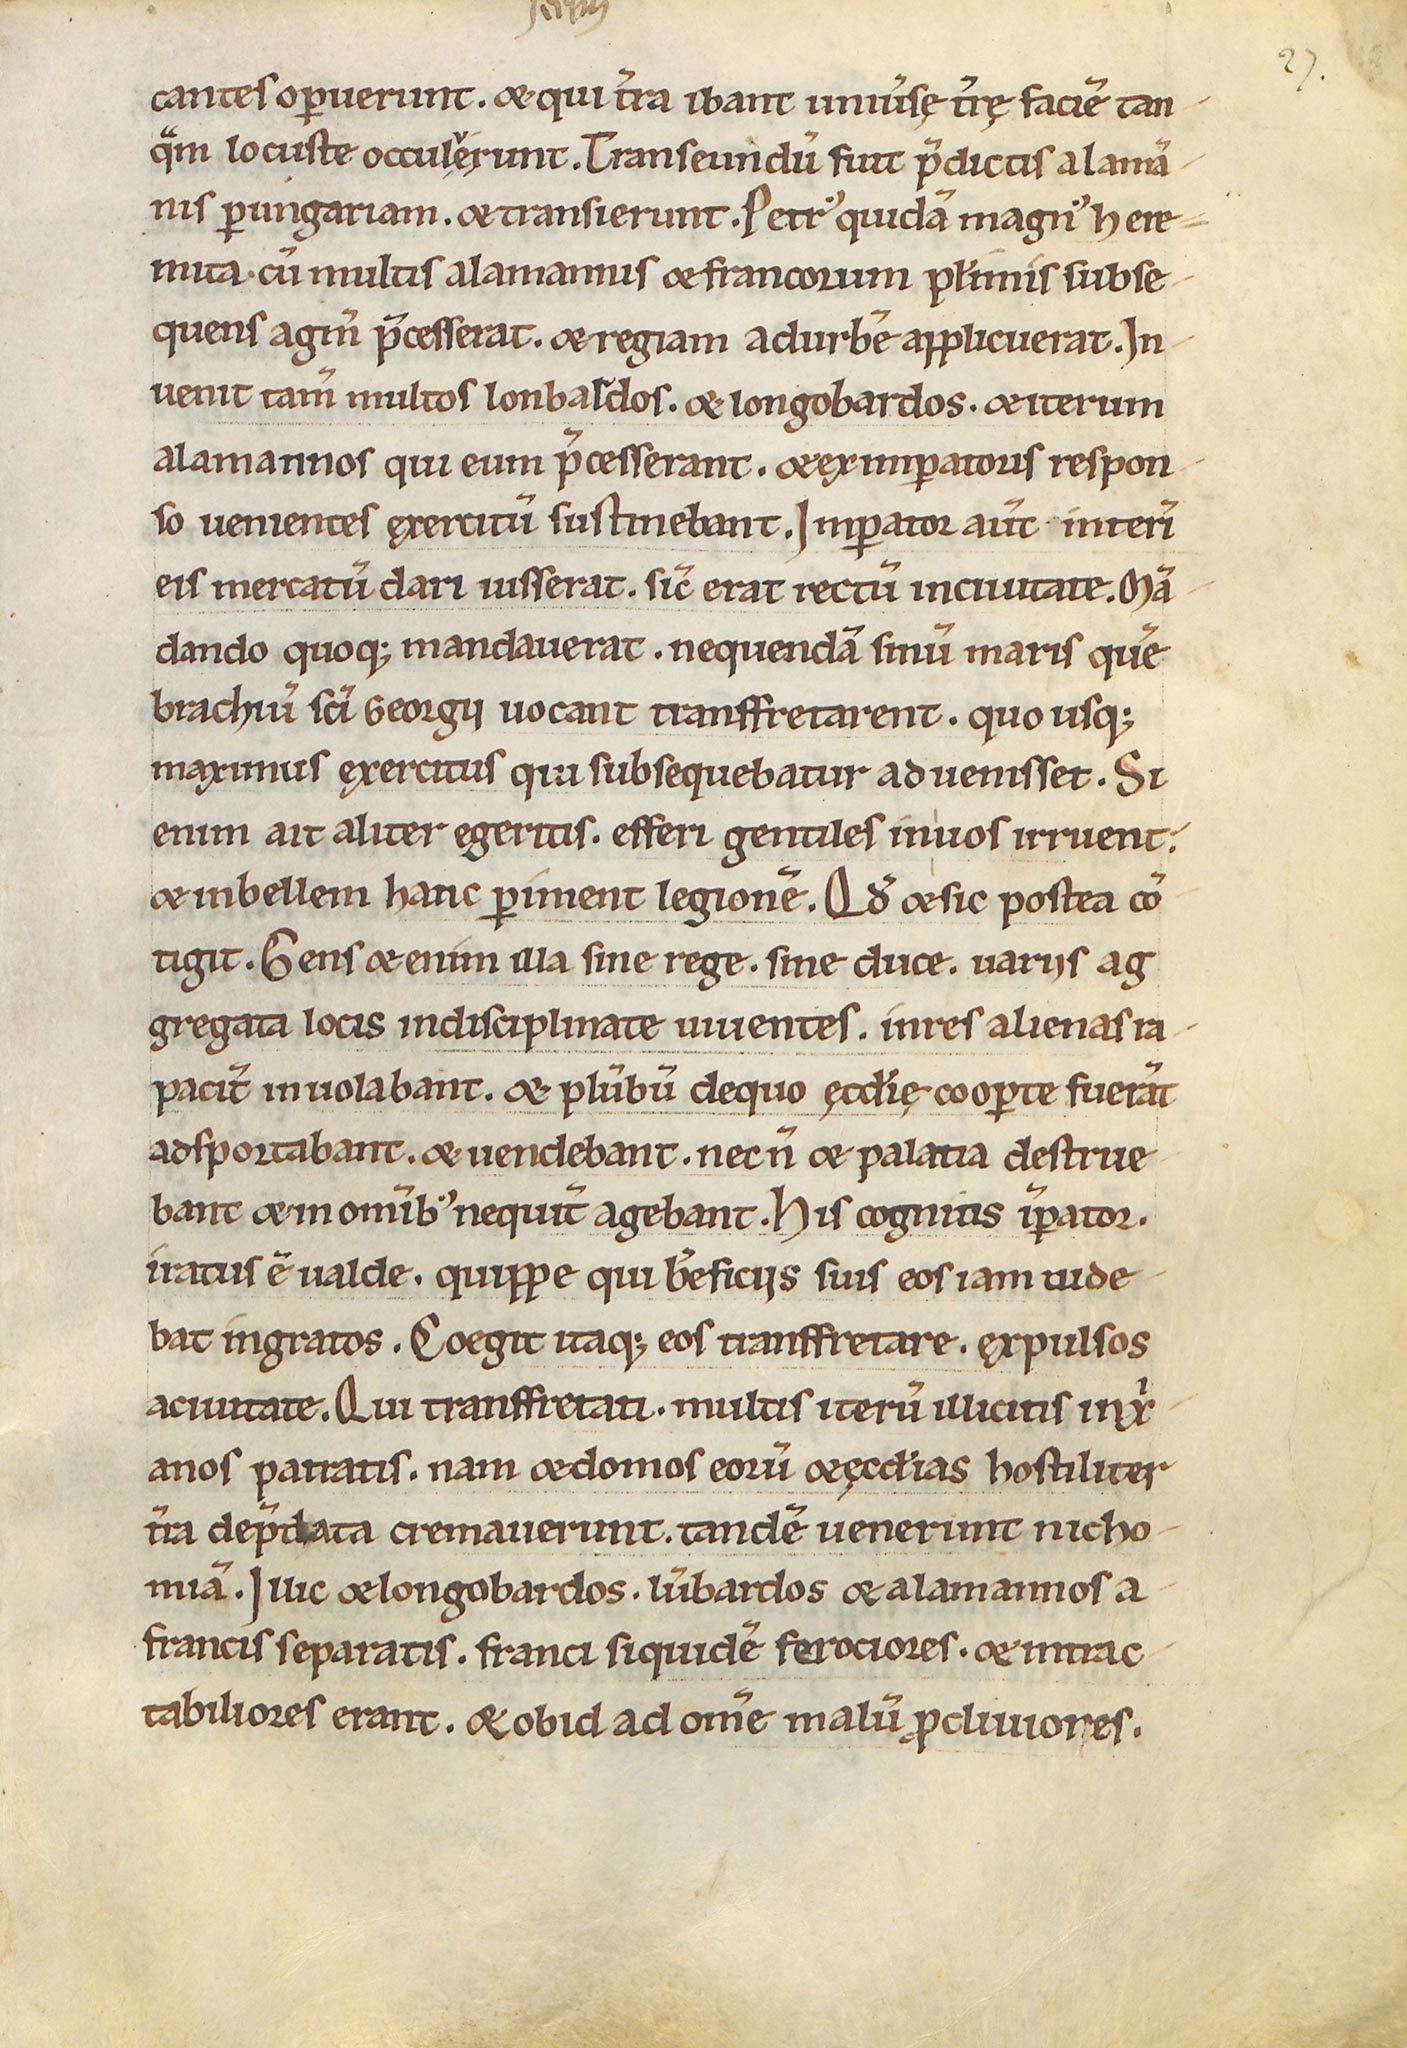 27.
cantes op̄uerunt. & qui t̄ra ibant uniūsę t̄rę faciē tan-
q̄m locuste occuluerunt. Transeundū fuit p̄dictis alamā-
nis p̱ungariam. & transierunt. Petr᷒ quidā magn᷒ here-
mita cū multis alamannis & francorum plīmis subse-
quens agm̄ p̄cesserat. & regiam adurbē applicuerat. In-
uenit tam̄ multos lonbardos. & longobardos. & iterum
alamannos qui eum p̄cesserant. & ex imꝑatoris respon-
so uenientes exercitū sustinebant. Imꝑator aūt interī
eis mercatū dari iusserat. sic̄ erat rectū inciuitate. Mā-
dando quoq; mandauerat. nequendā sinū maris quē
brachiū sc̄i Georgij uocant transfretarent. quo usq;
maximus exercitus qui subsequebatur aduenisset. Si
enim ait aliter egeritis. efferi gentiles inuos irruent.
& inbellem hanc ꝑiment legionē. Qd̄ & sic postea cō-
tigit. Gens & enim illa sine rege. sine duce. uarijs ag
gregata locis indisciplinate uiuentes. inres alienas ra-
pacit̄ inuolabant. & plūbū dequo ęccl̄ię cooꝑte fuerāt
adsportabant. & uendebant. nec n̄ & palatia destrue-
bant & in omīb᷒ nequit̄ agebant. His cognitis īꝑator.
iratus ē ualde. quippe qui bn̄ficijs suis eos iam uide-
bat ingratos. Coegit itaq; eos transfretare. expulsos
aciuitate. Qui transfretati. multis iterū illicitis inxp̄i-
anos patratis. nam & domos eorū & ęccl̄ias hostiliter
t̄ra dep̄data cremauerunt. tandē uenerunt nicho-
miā. Illic & longobardos. lūbardos & alamannos a
francis separatis. franci siquidē ferociores. & intrac-
tabiliores erant. & obid ad om̄e malū ꝓcliuiores.